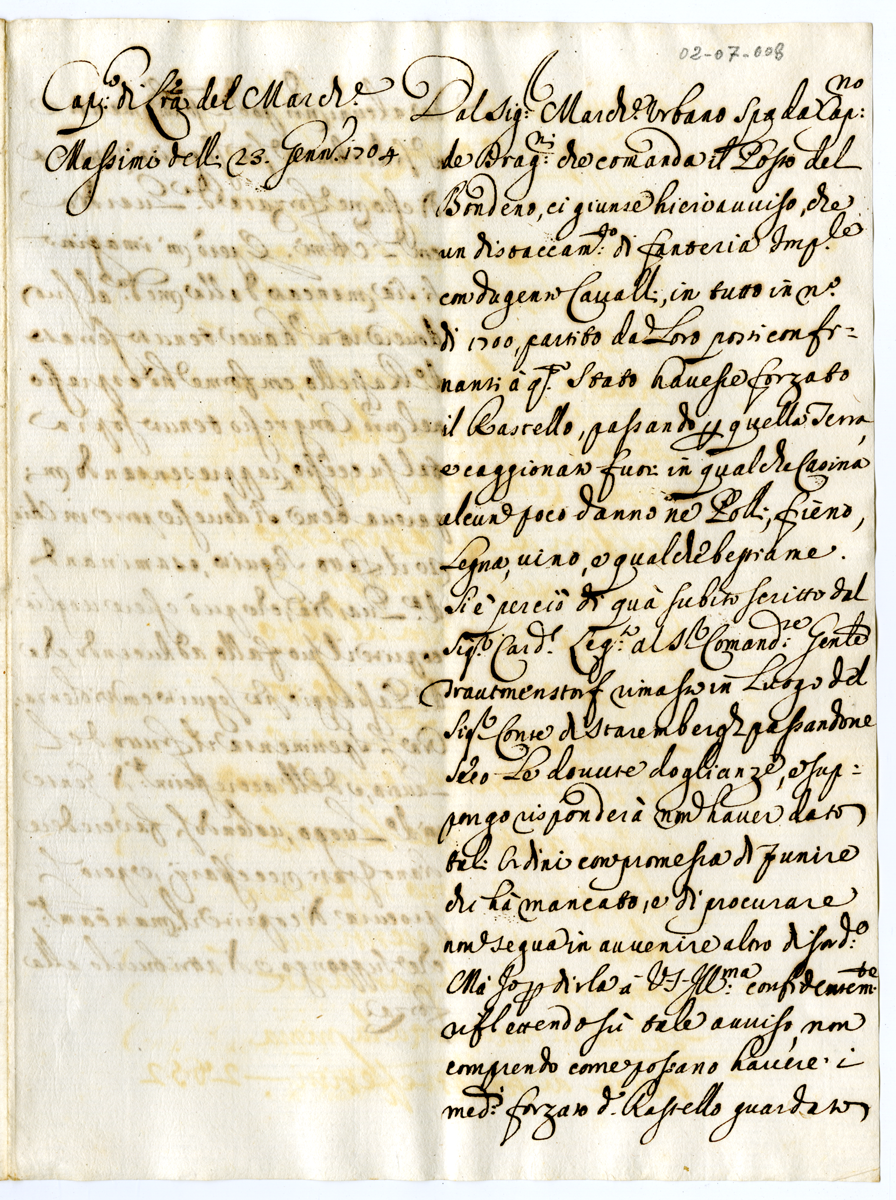 02-07-008
Cap:º di Lrã del March:e
Massimi dell: 23. Genn:º 1704
Dal Sig:r March:e Urbano Spada Cap:no
de Drag:ni che comanda il Posto del
Bondeno, ci giunse hieri avviso, che
un distaccam:to di fanteria Imp:le
con dugento Cavalli, in tutto in nº
di 1700, partito da Loro posti confi-
nanti à q.to Stato havesse forzato
il Rastello, passando p quella Terra,
e caggionato fuori in qualche Casina
alcun poco danno ne Polli, fieno,
Legna, vino, e qualche bestiame.
Si è perciò di quà subito scritto dal
Sig:r Card:l Leg:to al S:r Comand:te Gente
Trautmenstorf rimasto in Luogo del
Sig:r Conte di Starembergh passandone
seco Le dovute doglianze, e sup-
pongo risponderà non haver dato
tali Ordini con promessa di punire
chi hà mancato, e di procurare
non segua in avvenire altro disord:e
Mà Jo p dirla à VS Ill:ma confidentem:te
riflettendo sù tale avviso, non
comprendo come possano havere i
med:i forzato d:º Rastello guardato